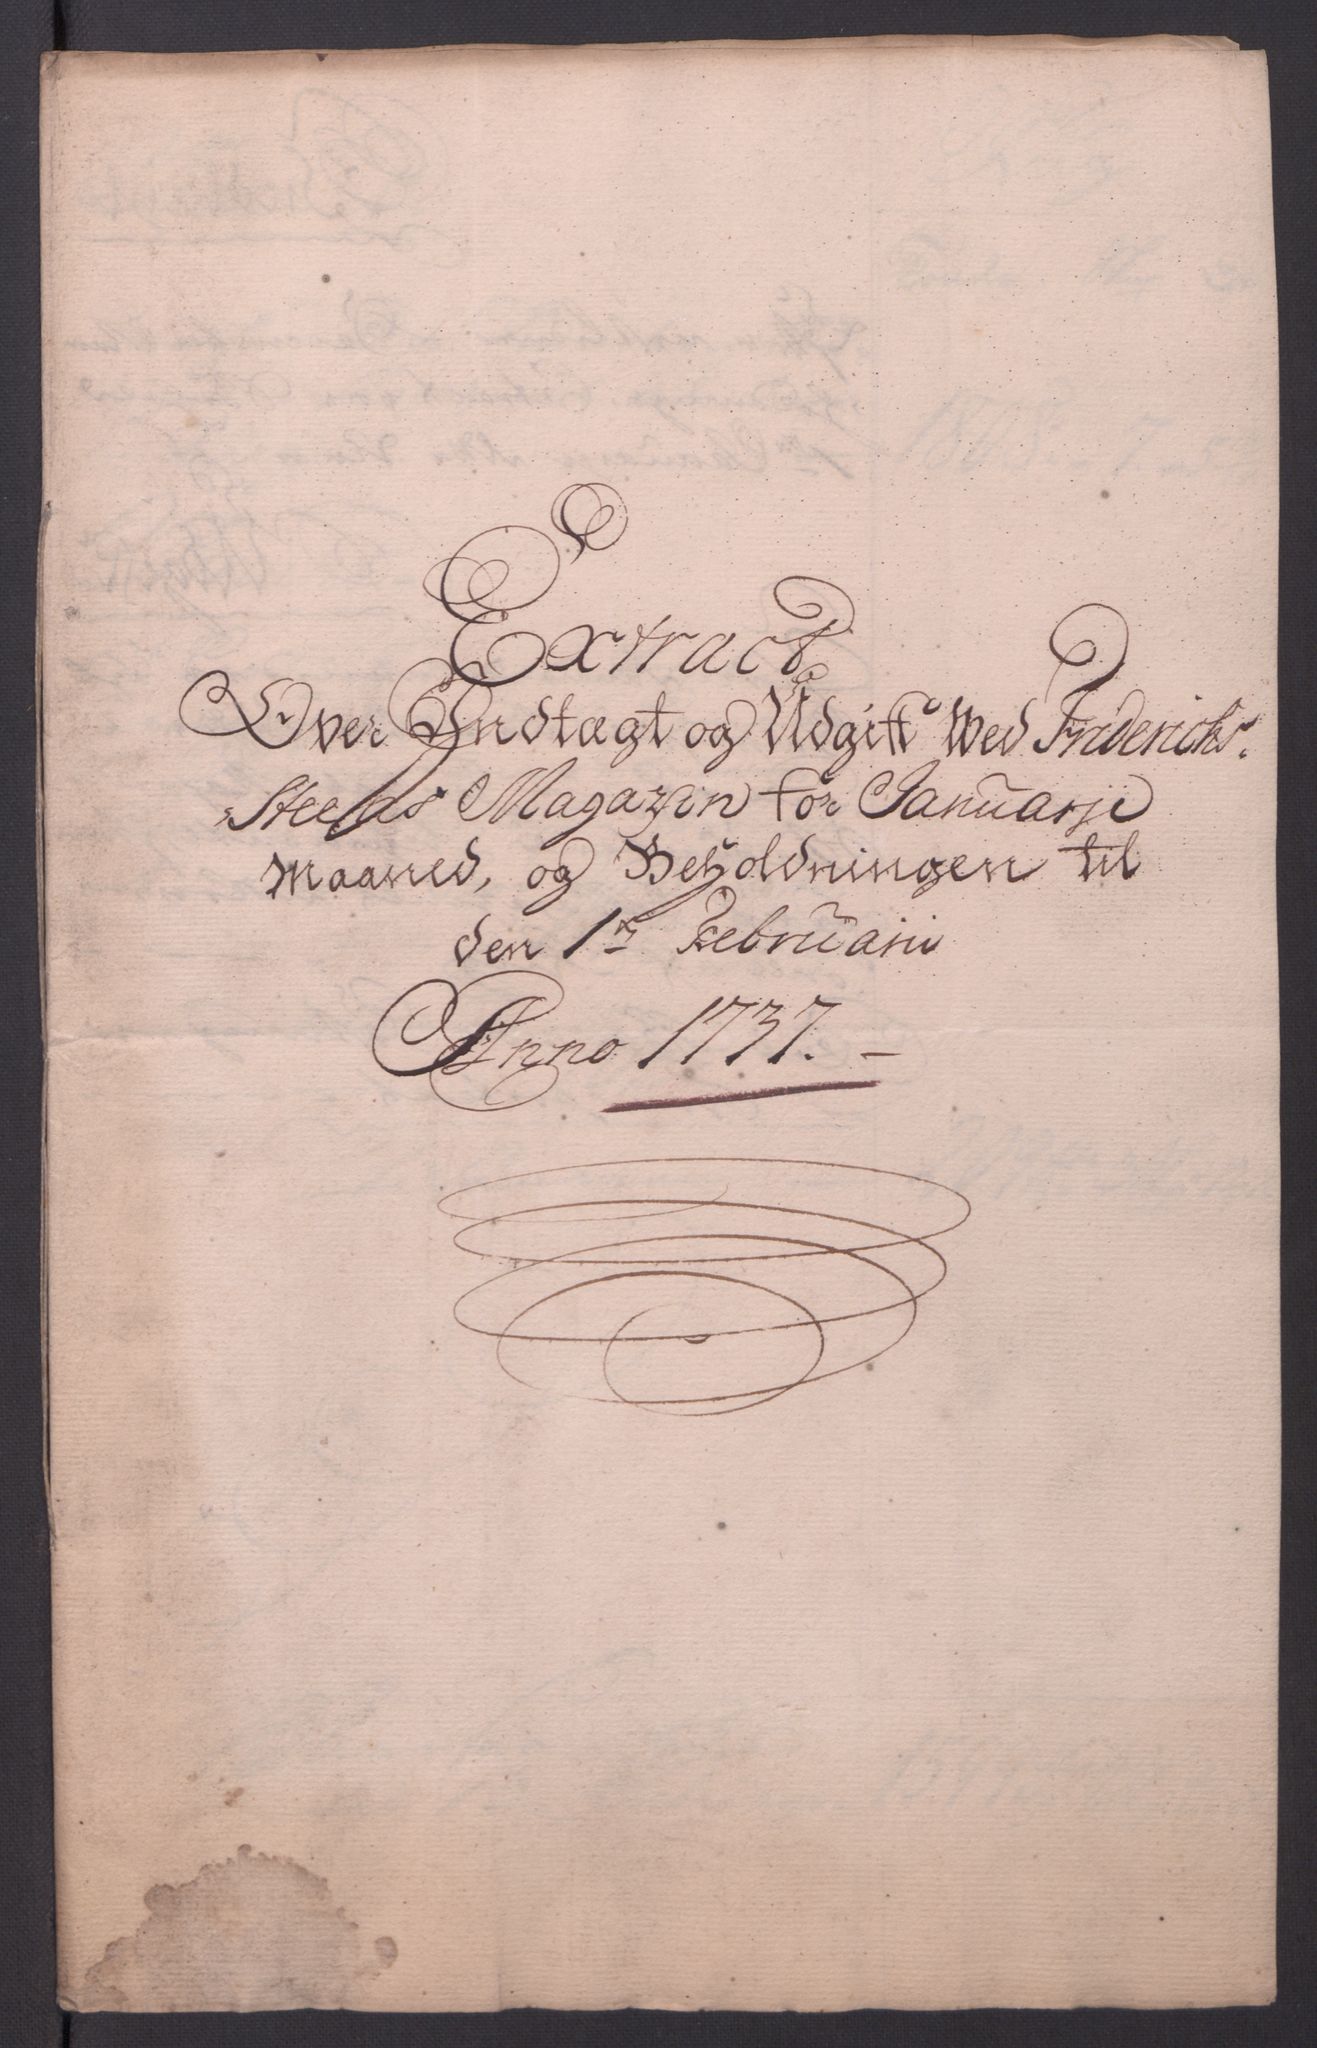 Extract
Over Indtægt og Udgift Wed Fridericks-
Steens Magazin for Januarji
Maaned, og Beholdningen til
den 1te Februarii
Anno 1737. –